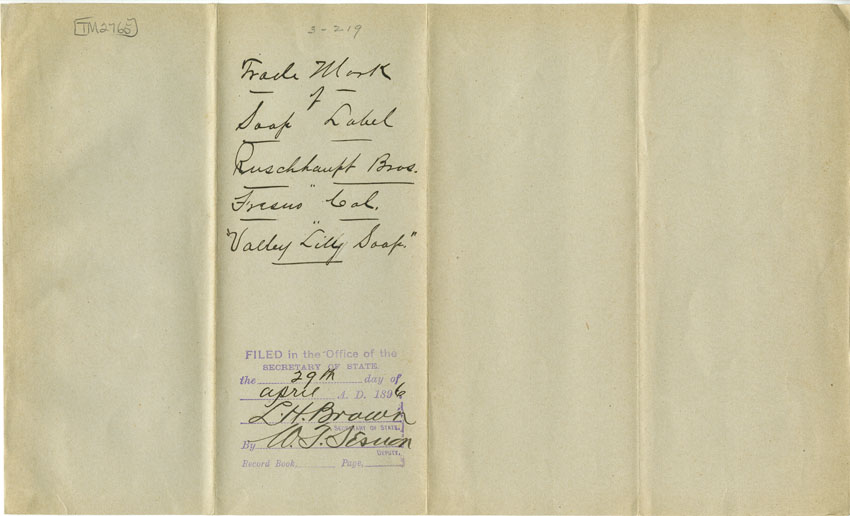 TM2765
3-219
Trade Mark
of
Soap Label
Ruschhaupt Bros.
Fresno Cal.
"Valley "Lilly Soap"
FILED in the Office of the
SECRETARY OF STATE.
the 29th day of
April A. D. 1896
L. H. Brown
SECRETARY OF STATE.
By W. T. Sesnon
DEPUTY.
Record Book, Page,